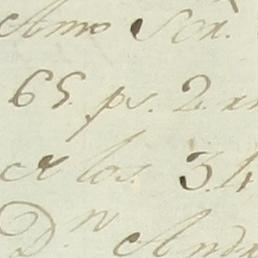 Amo Sór.
65. ps. 2. r
a los 34
D.n And